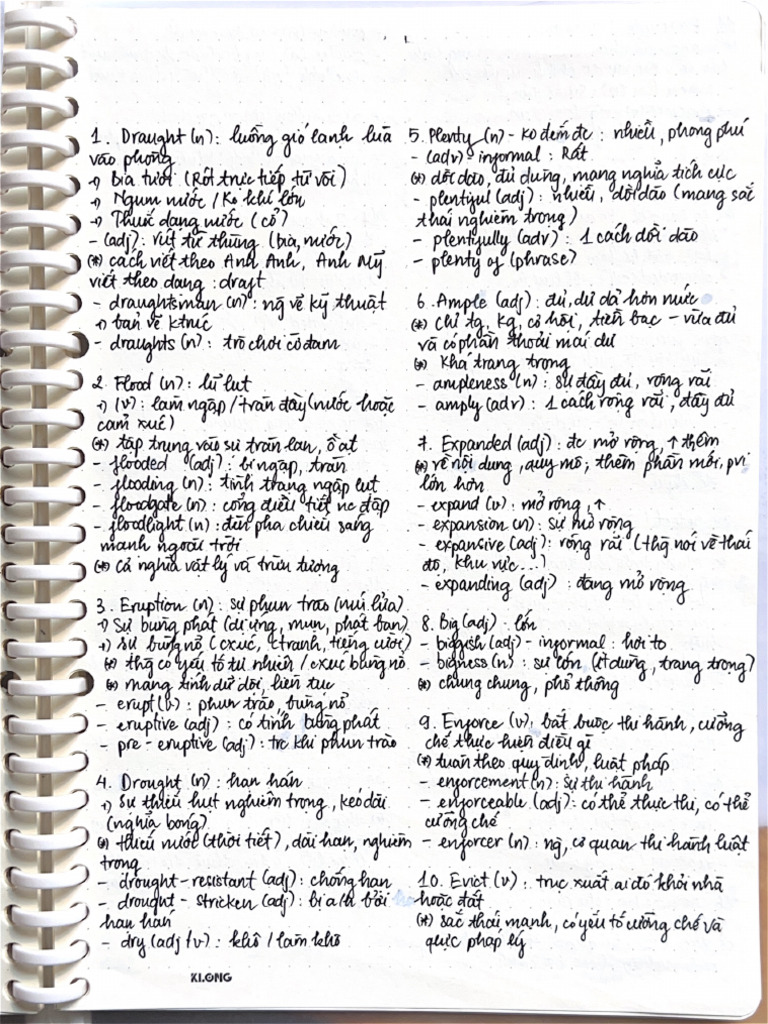 1. Draught (n): luồng gió lạnh lùa
vào phòng
→) Bia tươi (Rót trực tiếp từ vòi)
→) Ngụm nước / ko khí lớn
→) Thuốc dạng nước (cổ)
- (adj): rút từ thùng (bia, nước)
(*) cách viết theo Anh Anh, Anh Mỹ
viết theo dạng : draft
- draughtsman (n): ng vẽ kỹ thuật
→) bản vẽ ktrúc
- draughts (n): trò chơi cờ đam
2. Flood (n): lũ lụt
→) (v): làm ngập / tràn đầy (nước hoặc
cảm xúc)
(*) tập trung vào sự tràn lan, ồ ạt
- flooded (adj): bị ngập, tràn
- flooding (n): tình trạng ngập lụt
- floodgate (n): cổng điều tiết nc đập
- floodlight (n): đèn pha chiếu sáng
mạnh ngoài trời
(*) cả nghĩa vật lý và trừu tượng
3. Eruption (n): sự phun trào (núi lửa)
→) Sự bùng phát (dị ứng, mụn, phát ban)
→) Sự bùng nổ (cxúc, ctranh, tiếng cười)
(*) thg có yếu tố tự nhiên / cxúc bùng nổ
(*) mang tính dữ dội, liên tục
- erupt (v): phun trào, bùng nổ
- eruptive (adj): có tính bùng phát
- pre-eruptive (adj): trc khi phun trào
4. Drought (n): hạn hán
→) Sự thiếu hụt nghiêm trọng, kéo dài
(nghĩa bóng)
(*) thiếu nước (thời tiết), dài hạn, nghiêm
trọng
- drought-resistant (adj): chống hạn
- drought-stricken (adj): bị a/h bởi
hạn hán
- dry (adj/v): khô / làm khô
5. Plenty (n) - ko đếm đc : nhiều, phong phú
- (adv) - informal : Rất
(*) dồi dào, đủ dùng, mang nghĩa tích cực
- plentiful (adj): nhiều, dồi dào (mang sắc
thái nghiêm trọng)
- plentifully (adv): 1 cách dồi dào
- plenty of (phrase)
6. Ample (adj): đủ, dư dả hơn mức
(*) chỉ tg, kg, cơ hội, tiền bạc - vừa đủ
và có phần thoải mái dư
(*) Khá trang trọng
- ampleness (n): sự đầy đủ, rộng rãi
- amply (adv): 1 cách rộng rãi, đầy đủ
7. Expanded (adj): đc mở rộng, ↑ thêm
(*) về nội dung, quy mô; thêm phần mới, pvi
lớn hơn
- expand (v): mở rộng, ↑
- expansion (n): sự mở rộng
- expansive (adj): rộng rãi (thg nói về thái
độ, khu vực...)
- expanding (adj): đang mở rộng
8. Big (adj): lớn
- biggish (adj) - informal: hơi to
- bigness (n): sự lớn (ít dùng, trang trọng)
(*) chung chung, phổ thông
9. Enforce (v): bắt buộc thi hành, cưỡng
chế thực hiện điều gì
(*) tuân theo quy định, luật pháp
- enforcement (n): sự thi hành
- enforceable (adj): có thể thực thi, có thể
cưỡng chế
- enforcer (n): ng, cơ quan thi hành luật
10. Evict (v): trục xuất ai đó khỏi nhà
hoặc đất
(*) sắc thái mạnh, có yếu tố cưỡng chế và
quực pháp lý
KLONG